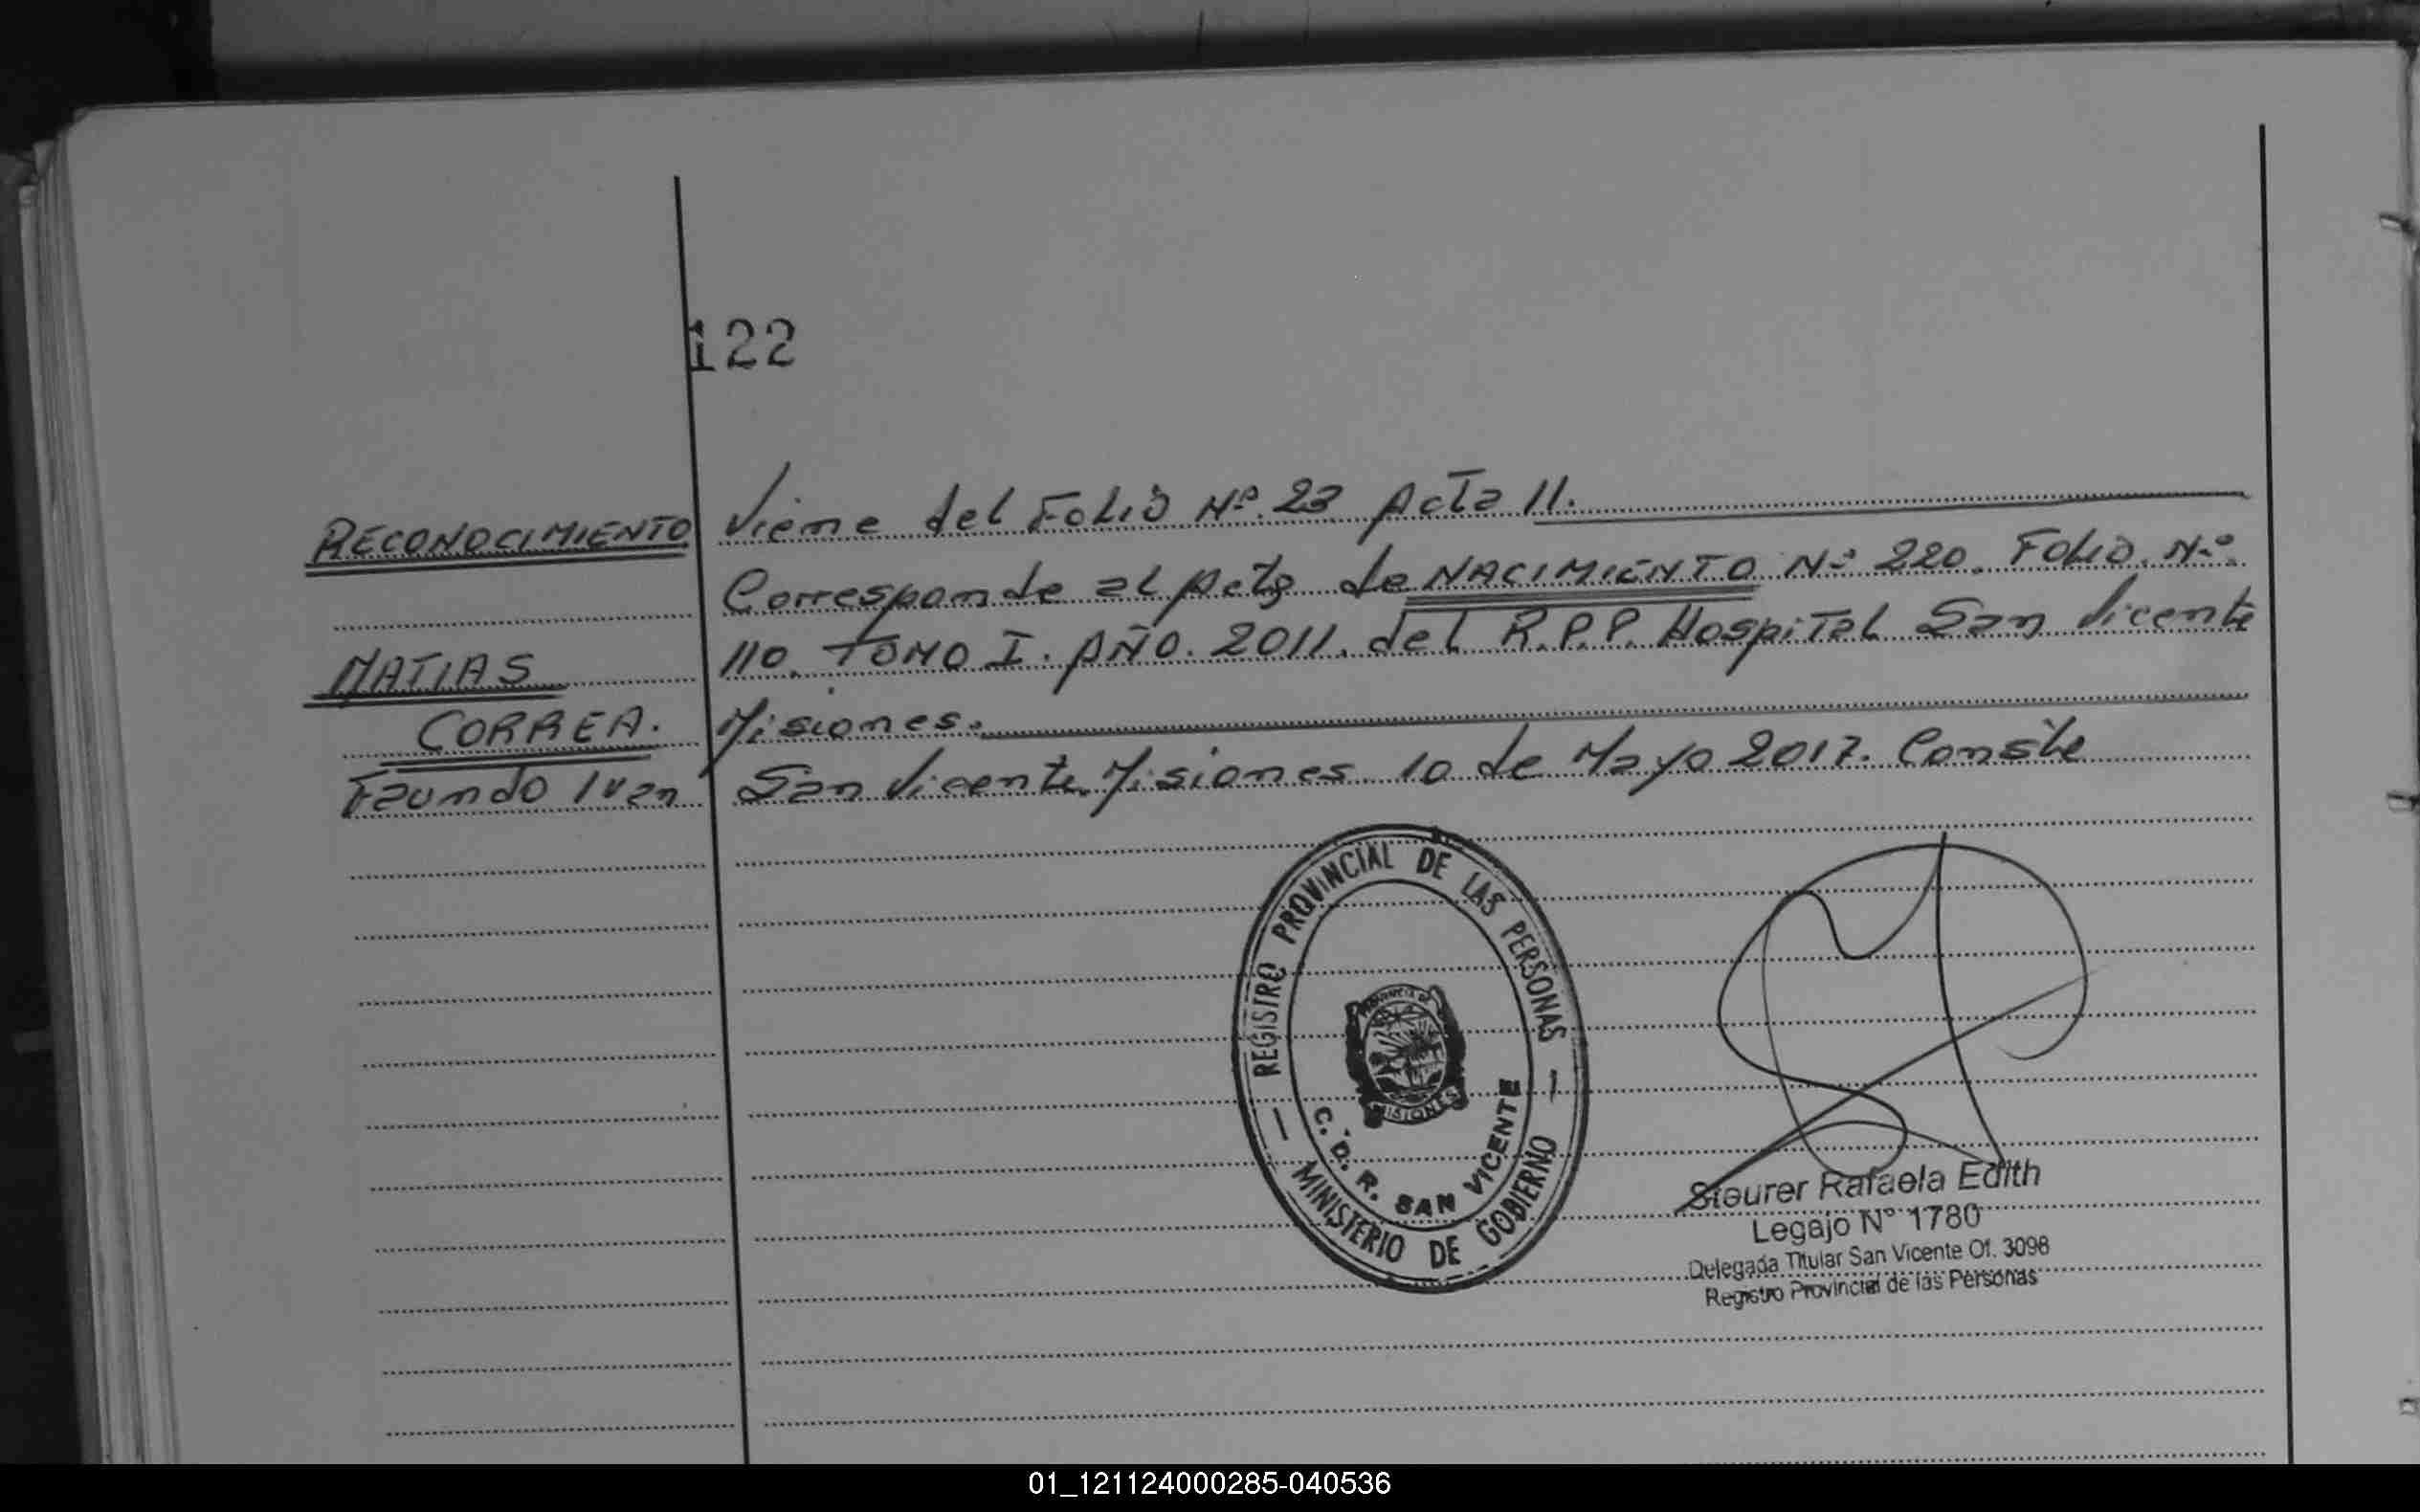 122
RECONOCIMIENTO
MATIAS
CORREA.
Facundo Ivan
Viene del Folio Nº. 23 Acta 11.
Corresponde al Acta de NACIMIENTO Nº 220. Folio. Nº.
110. TOMO I. AÑO. 2011. del R.P.P. Hospital San Vicente
Misiones.
San Vicente. Misiones 10 de Mayo 2017. Conste
REGISTRO PROVINCIAL DE LAS PERSONAS
PROVINCIA DE
MISIONES
C. D. R. SAN VICENTE
MINISTERIO DE GOBIERNO
Steurer Rafaela Edith
Legajo N° 1780
Delegada Titular San Vicente Of. 3098
Registro Provincial de las Personas
01_121124000285-040536